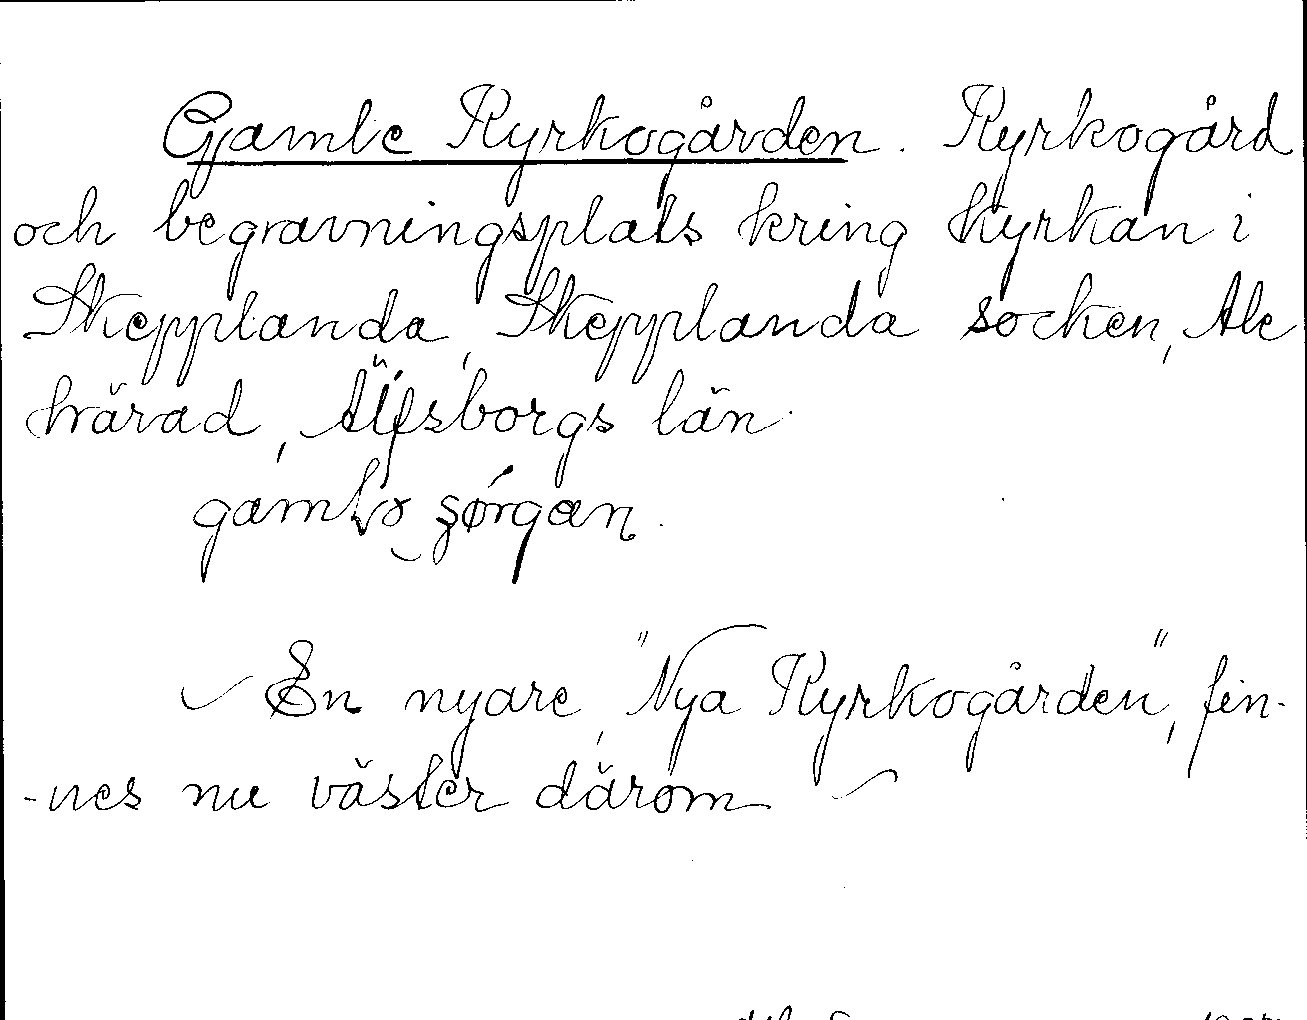 Gamle Kyrkogården. Kyrkogård
och begravningsplats kring kyrkan i
Skepplanda, Skepplanda socken, Ale
härad, Älfsborgs län.
En nyare, "Nya Kyrkogården", fin-
-nes nu väster därom